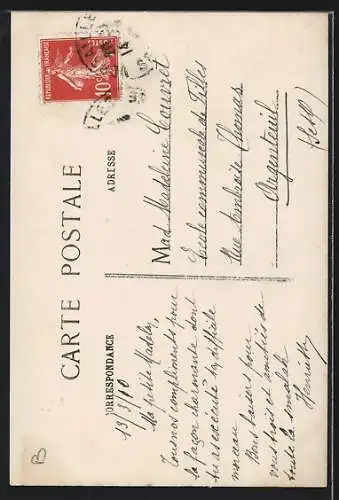 CARTE POSTALE
CORRESPONDANCE
13/3/10
Ma petite Madelin,
Tous nos compliments pour
ta façon charmante dont
tu as exécuté ta difficile
morceau
Bons baisers pour
vous trois et amitiés de
toute la smalah
Henriette
ADRESSE
Mad Madeleine Couvret
Ecole communale de Filles
Rue Ambroise Thomas
Argenteuil
(S et O)
REPUBLIQUE FRANÇAISE
POSTES
10c
B